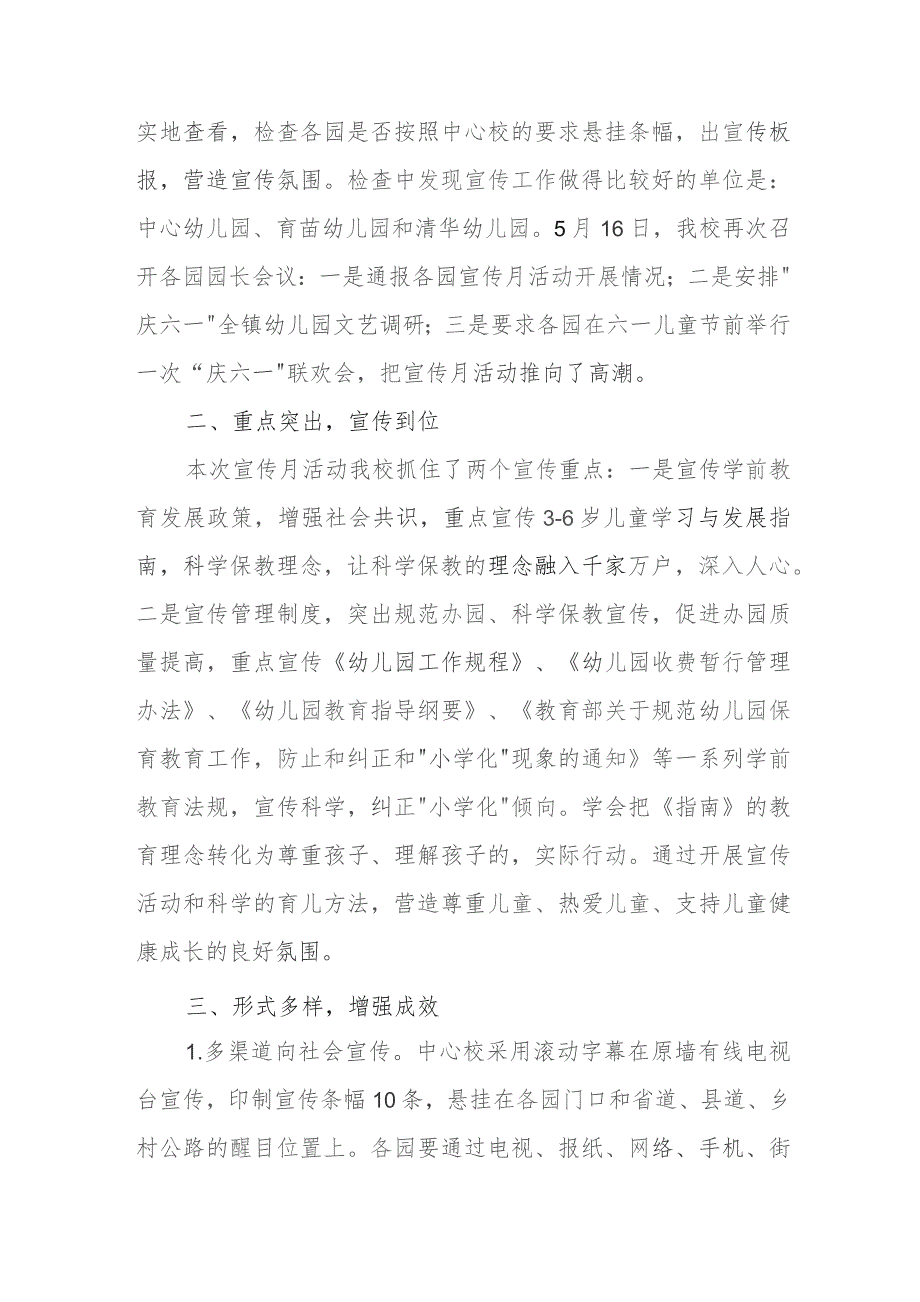 实地查看，检查各园是否按照中心校的要求悬挂条幅，出宣传板
报，营造宣传氛围。检查中发现宣传工作做得比较好的单位是：
中心幼儿园、育苗幼儿园和清华幼儿园。5 月 16 日，我校再次召
开各园园长会议：一是通报各园宣传月活动开展情况；二是安排"
庆六一"全镇幼儿园文艺调研；三是要求各园在六一儿童节前举行
一次“庆六一"联欢会，把宣传月活动推向了高潮。
二、重点突出，宣传到位
本次宣传月活动我校抓住了两个宣传重点：一是宣传学前教
育发展政策，增强社会共识，重点宣传 3-6 岁儿童学习与发展指
南，科学保教理念，让科学保教的理念融入千家万户，深入人心。
二是宣传管理制度，突出规范办园、科学保教宣传，促进办园质
量提高，重点宣传《幼儿园工作规程》、《幼儿园收费暂行管理
办法》、《幼儿园教育指导纲要》、《教育部关于规范幼儿园保
育教育工作，防止和纠正和"小学化"现象的通知》等一系列学前
教育法规，宣传科学，纠正"小学化"倾向。学会把《指南》的教
育理念转化为尊重孩子、理解孩子的，实际行动。通过开展宣传
活动和科学的育儿方法，营造尊重儿童、热爱儿童、支持儿童健
康成长的良好氛围。
三、形式多样，增强成效
1.多渠道向社会宣传。中心校采用滚动字幕在原墙有线电视
台宣传，印制宣传条幅 10 条，悬挂在各园门口和省道、县道、乡
村公路的醒目位置上。各园要通过电视、报纸、网络、手机、街